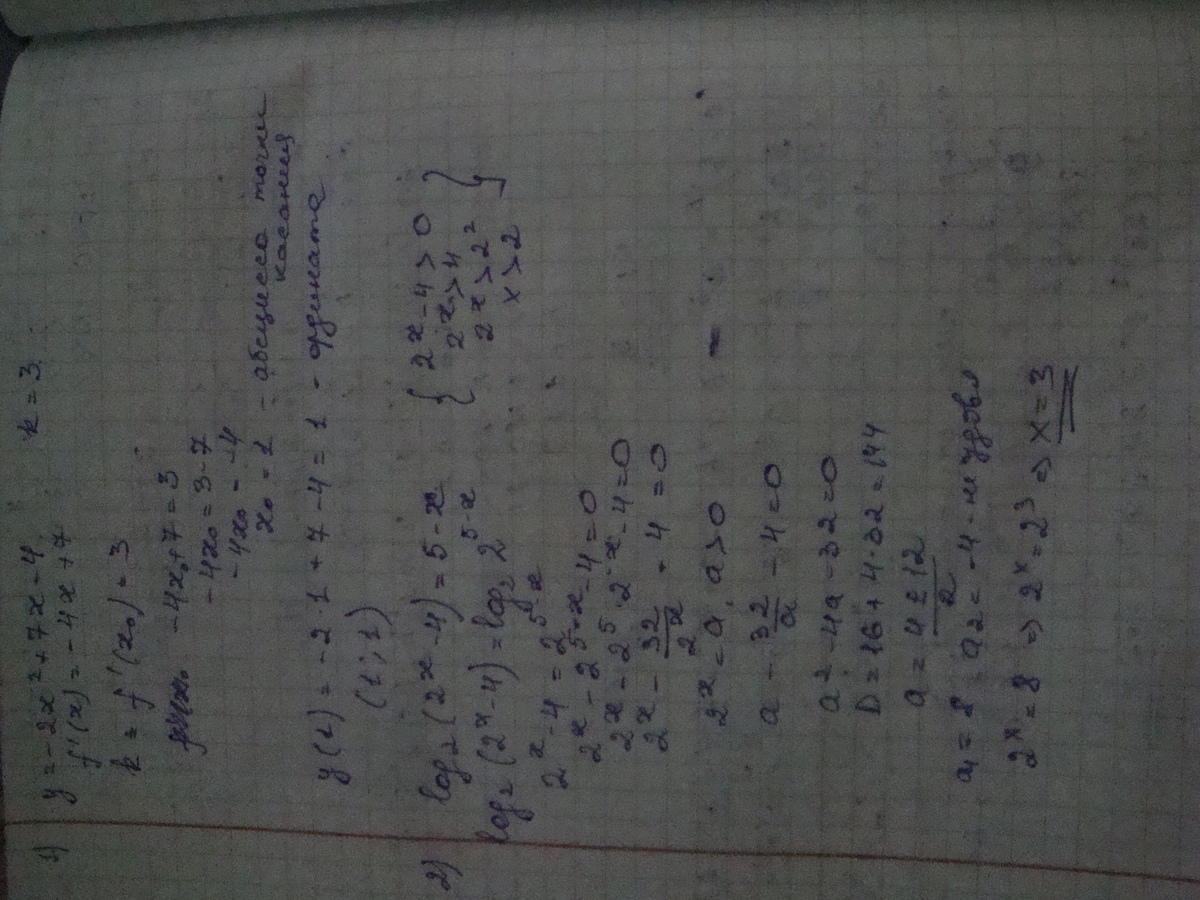 1) y = -2x² + 7x - 4 k = 3
f'(x) = -4x + 7
k = f'(x₀) = 3
-4x₀ + 7 = 3
-4x₀ = 3 - 7
-4x₀ = -4
x₀ = 1 - абсцисса точки касания
y(1) = -2·1 + 7 - 4 = 1 - ордината
(1; 1)
2) log₂(2ˣ - 4) = 5 - x
{ 2ˣ - 4 > 0
2ˣ > 4
2ˣ > 2²
x > 2 }
log₂(2ˣ - 4) = log₂ 2⁵⁻ˣ
2ˣ - 4 = 2⁵⁻ˣ
2ˣ - 2⁵⁻ˣ - 4 = 0
2ˣ - 2⁵ · 2⁻ˣ - 4 = 0
2ˣ - 32/2ˣ - 4 = 0
2ˣ = a, a > 0
a - 32/a - 4 = 0
a² - 4a - 32 = 0
D = 16 + 4·32 = 144
a = (4 ± 12)/2
a₁ = 8 a₂ = -4 - не удовл
2ˣ = 8 => 2ˣ = 2³ => x = 3